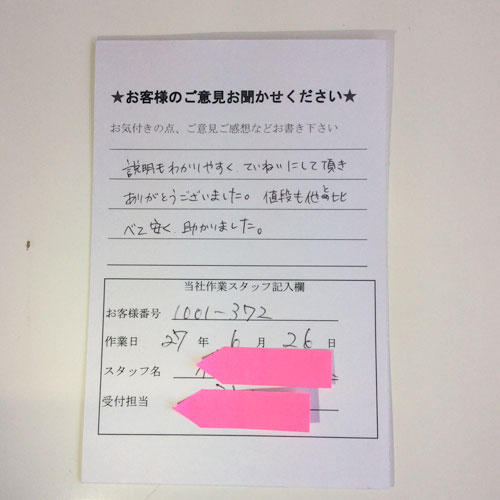 ★お客様のご意見お聞かせください★
お気付きの点、ご意見ご感想などお書き下さい
説明もわかりやすく、ていねいにして頂き
ありがとうございました。値段も他と比
べて安く、助かりました。
当社作業スタッフ記入欄
お客様番号 1001-372
作業日 27 年 6 月 26 日
スタッフ名
受付担当